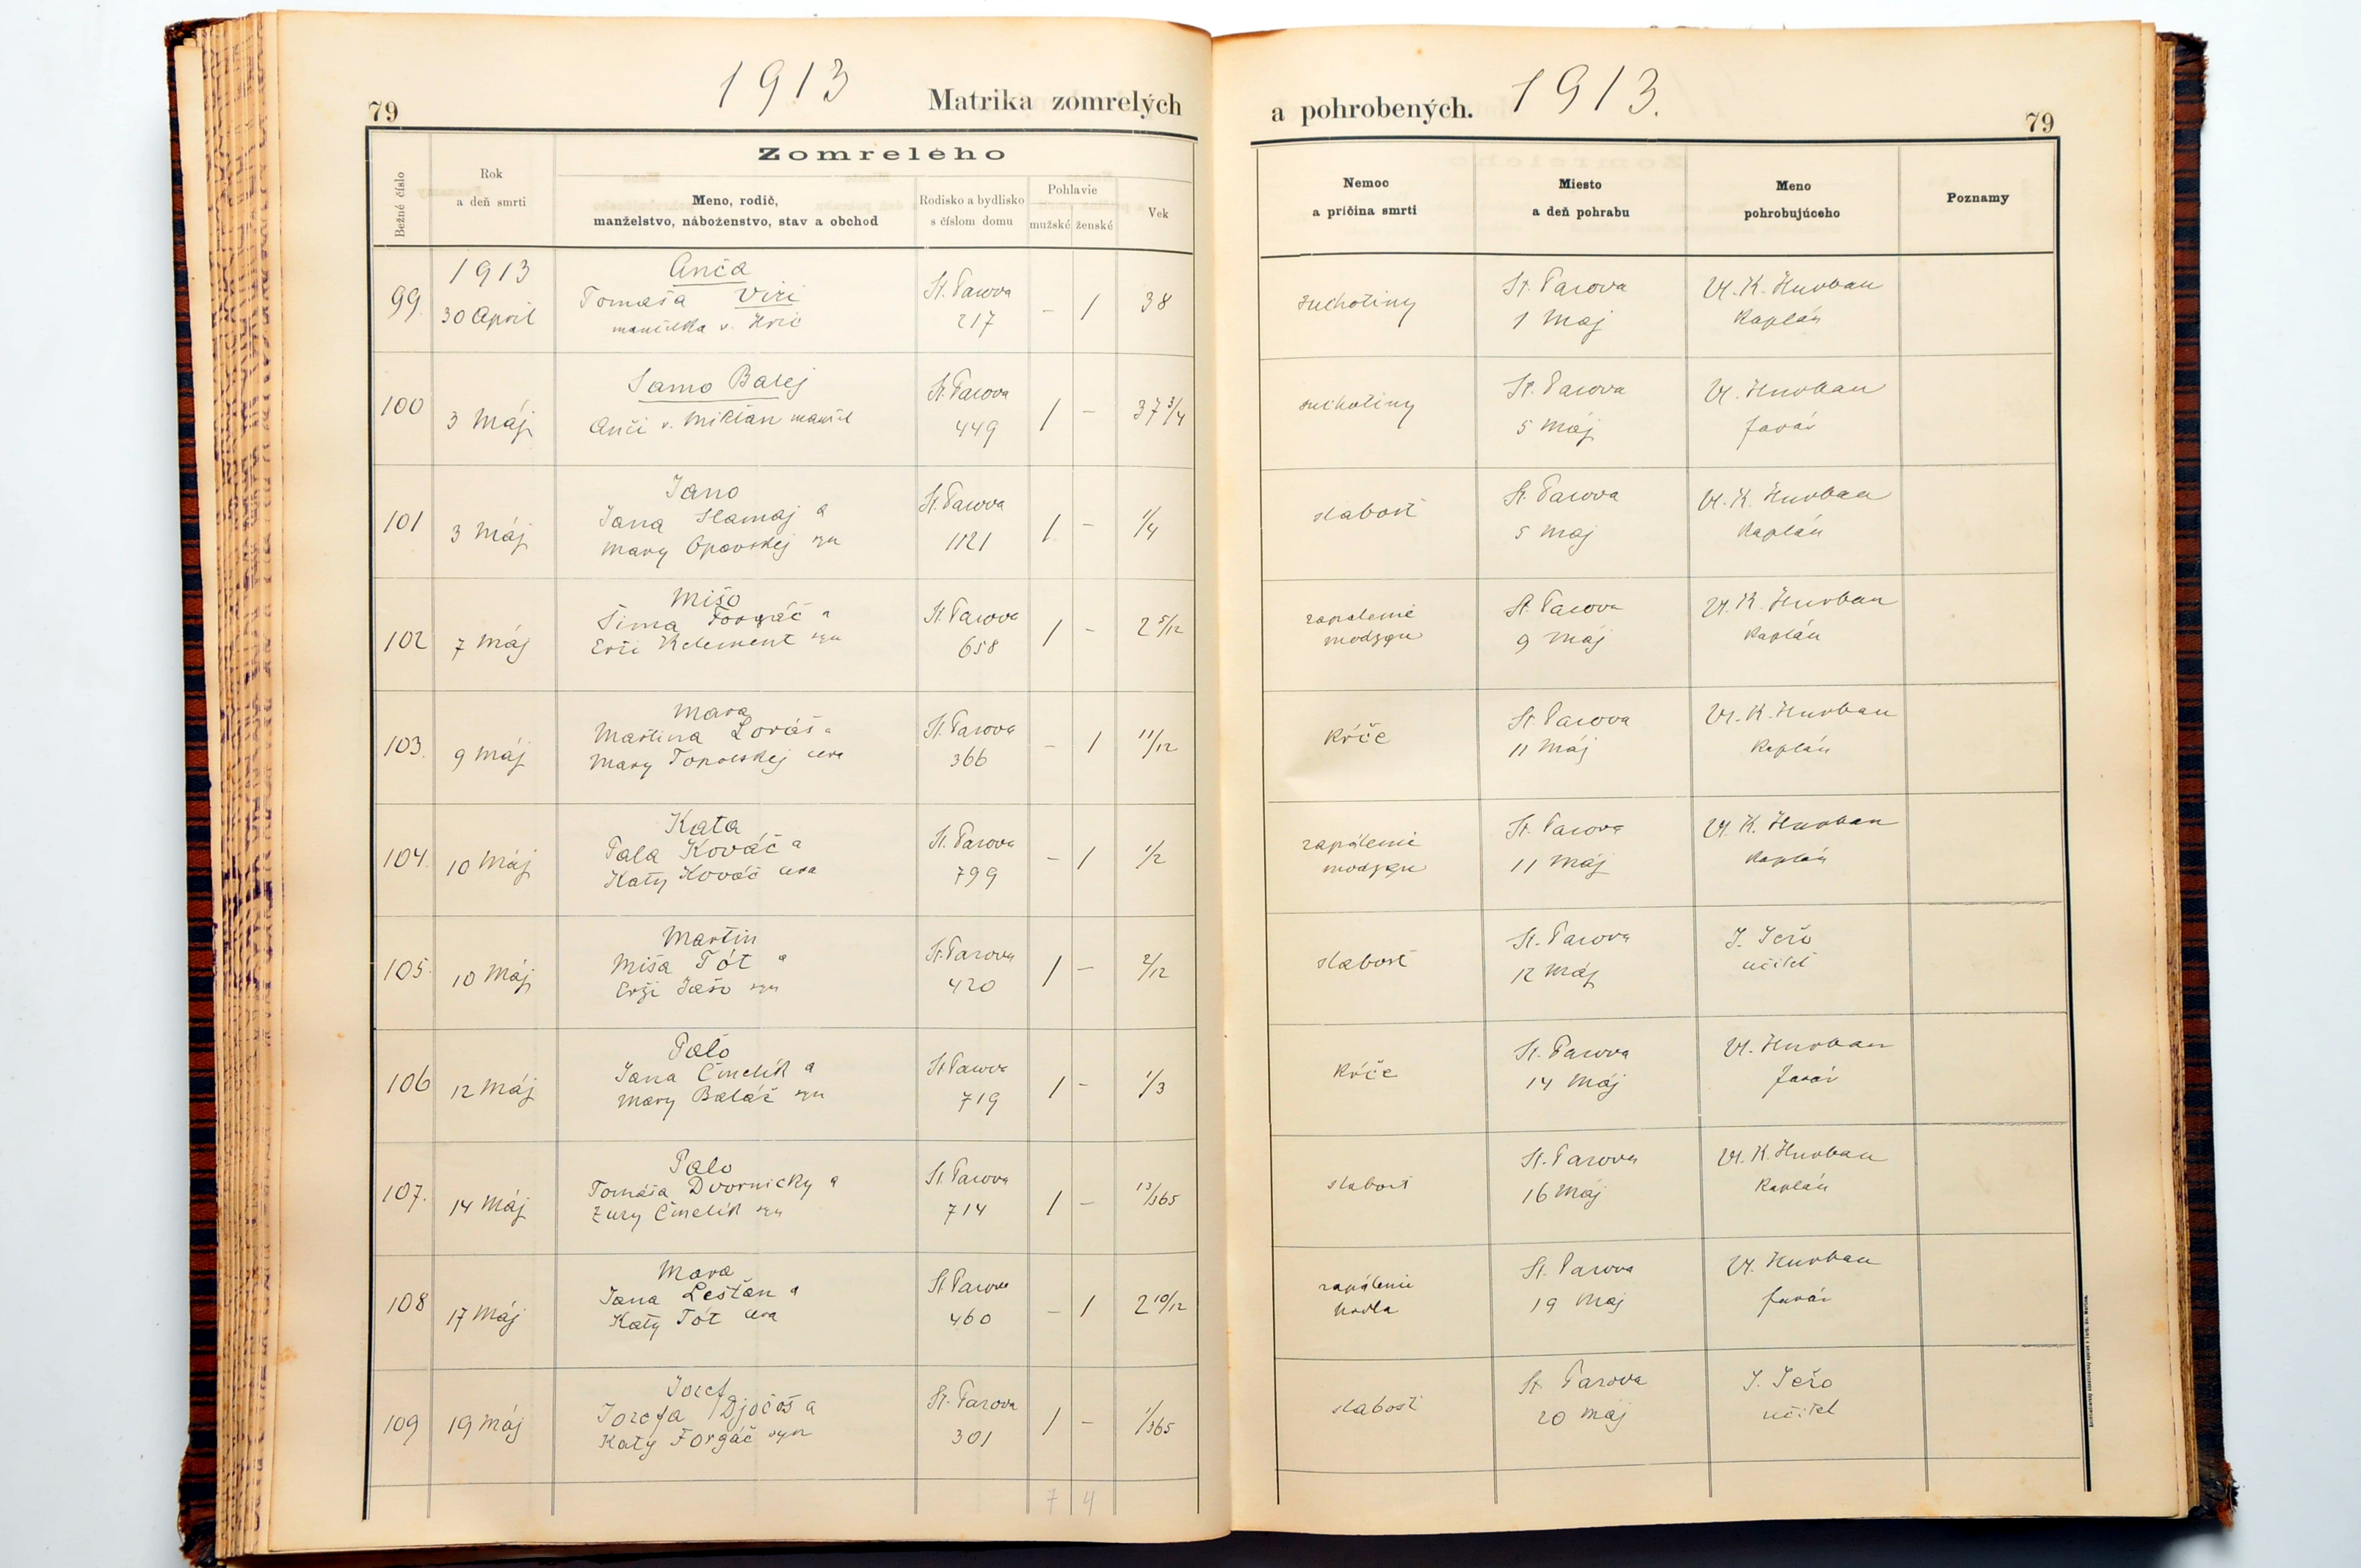 1913
79
Matrika zomrelých
a pohrobených.
1913.
79
Bežné číslo
Rok
a deň smrti
Zomrelého
Meno, rodič,
manželstvo, náboženstvo, stav a obchod
Rodisko a bydlisko
s číslom domu
Pohlavie
mužské ženské
Vek
Nemoc
a príčina smrti
Miesto
a deň pohrabu
Meno
pohrobujúceho
Poznamy
1913
99. 30 April
Anča
Tomaša Viri
manželka v. Hric
St. Pazova
217
– 1 38
suchotiny
St. Pazova
1 Maj
Vl. K. Hurban
Kaplán
100 3 Máj
Samo Balej
Anči v. Miklan manžel
St. Pazova
449
1 – 37 3/4
suchotiny
St. Pazova
5 Máj
Vl. Hurban
farár
101 3 Máj
Jano
Jana Slamaj a
Mary Opavskej syn
St. Pazova
1121
1 – 1/4
slabosť
St. Pazova
5 Maj
Vl. K. Hurban
Kaplán
102 7 Máj
Mišo
Šima Forgáč a
Erži Klement syn
St. Pazova
658
1 – 2 5/12
zapalenie
modzgu
St. Pazova
9 Máj
Vl. K. Hurban
Kaplán
103. 9 Máj
Mara
Martina Loráš a
Mary Topolskej cera
St. Pazova
366
– 1 11/12
Kŕče
St. Pazova
11 Máj
Vl. K. Hurban
Kaplán
104. 10 Máj
Kata
Pala Kováč a
Katy Kováč cera
St. Pazova
799
– 1 1/2
zapálenie
modzgu
St. Pazova
11 Máj
Vl. K. Hurban
Kaplán
105. 10 Máj
Martin
Miša Tót a
Erži Jašo syn
St. Pazova
420
1 – 2/12
slabosť
St. Pazova
12 Máj
J. Ješo
učiteľ
106 12 Máj
Palo
Jana Čmelík a
Mary Baláž syn
St. Pazova
719
1 – 1/3
Kŕče
St. Pazova
14 Máj
Vl. Hurban
farár
107. 14 Máj
Palo
Tomáša Dvornicky a
Zuzy Čmelík syn
St. Pazova
714
1 – 13/365
slabosť
St. Pazova
16 Máj
Vl. K. Hurban
Kaplán
108 17 Máj
Mara
Jana Leštan a
Katy Tót cera
St. Pazova
460
– 1 2 10/12
zapálenie
hrdla
St. Pazova
19 Maj
Vl. Hurban
farár
109 19 Máj
Jozef
Jozefa Djočoš a
Katy Forgáč syn
St. Pazova
301
1 – 1/365
slabosť
St. Pazova
20 Máj
J. Ješo
učiteľ
7 4